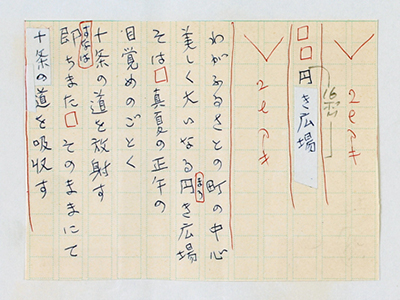 2lアキ
16ポ
□□円き広場
2lアキ
わがふるさとの町の中心
まろ
美しく大いなる円き広場
そは□真夏の正午の
目覚めのごとく
十条の道を放射す
すなは
即ちまた□そのままにて
十条の道を吸収す